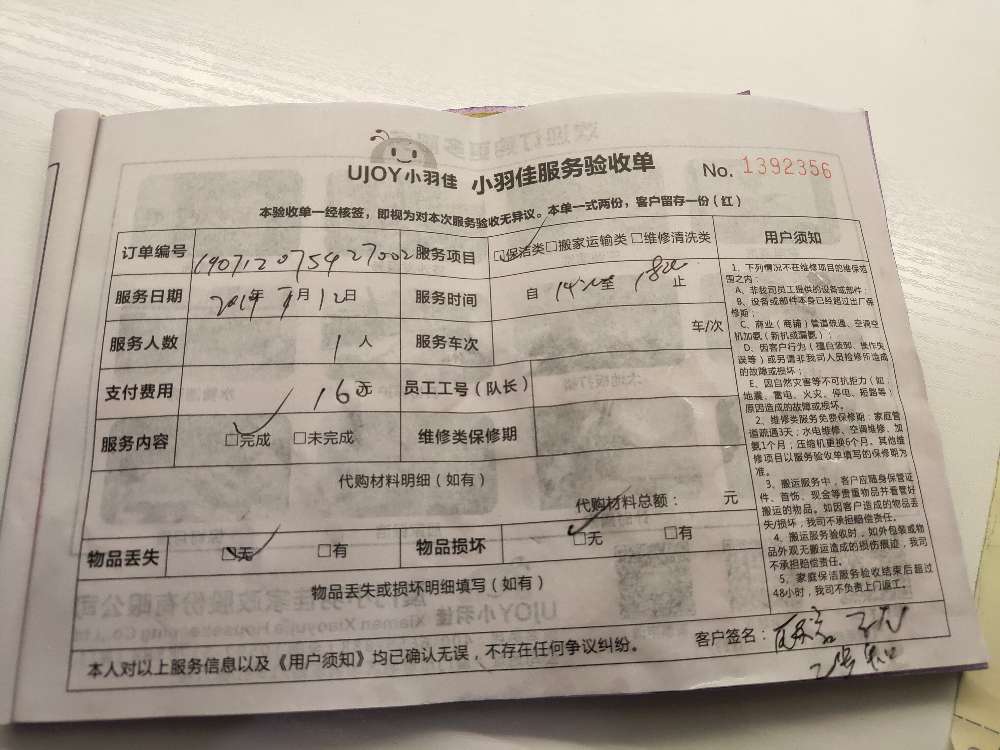 UJOY小羽佳 小羽佳服务验收单 No. 1392356
本验收单一经核签，即视为对本次服务验收无异议。本单一式两份，客户留存一份（红）
订单编号 190712075427002 服务项目 □保洁类□搬家运输类□维修清洗类
服务日期 2019年 7月12日 服务时间 自 14:00至 18:00止
服务人数 1 人 服务车次 车/次
支付费用 160元 员工工号（队长）
服务内容 □完成 □未完成 维修类保修期
代购材料明细（如有）
代购材料总额： 元
物品丢失 □无 □有 物品损坏 □无 □有
物品丢失或损坏明细填写（如有）
本人对以上服务信息以及《用户须知》均已确认无误，不存在任何争议纠纷。 客户签名：
用户须知
1、下列情况不在维修项目的维保范
围之内：
A、非我司员工提供的设备或部件；
B、设备或部件本身已经超过出厂保
修期；
C、商业（商铺）管道疏通、空调空
机加氨（新机或漏氨）；
D、因客户行为（擅自添加、操作失
误等）或另请非我司人员检修所造成
的故障或损坏；
E、因自然灾害等不可抗拒力（如：
地震、雷电、火灾、停电、短路等）
原因造成的故障或损坏。
2、维修类服务免费保修期：家庭管
道疏通3天；水电维修、空调维修、加
氨1个月；压缩机更换6个月。其他维
修项目以服务验收单填写的保修期为
准。
3、搬运服务中，客户应随身保管证
件、首饰、现金等贵重物品并看管好
搬运的物品。如因客户造成的物品丢
失/损坏，我司不承担赔偿责任。
4、搬运服务验收时，如外包装或物
品外观无搬运造成的损伤痕迹，我司
不承担赔偿责任。
5、家庭保洁服务验收结束后超过
48小时，我司不负责上门返工。